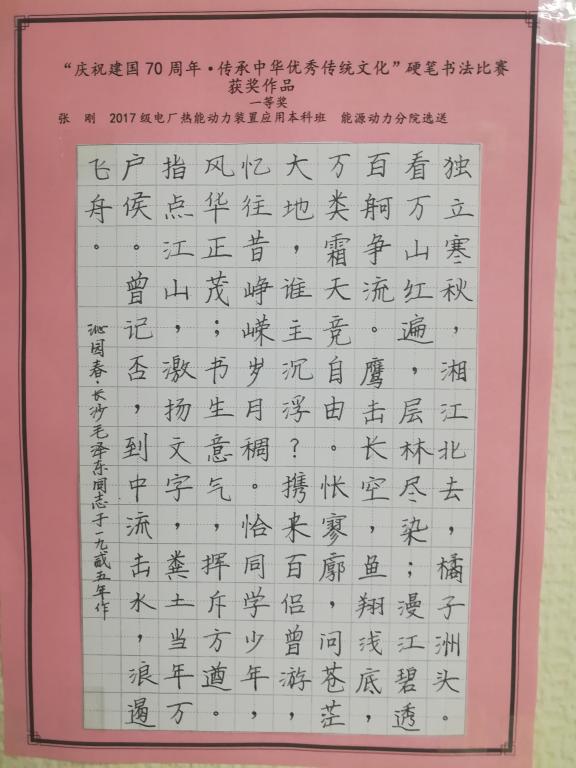 “庆祝建国70周年·传承中华优秀传统文化”硬笔书法比赛
获奖作品
一等奖
张 刚 2017级电厂热能动力装置应用本科班 能源动力分院选送
独立寒秋，湘江北去，橘子洲头。
看万山红遍，层林尽染；漫江碧透
百舸争流。鹰击长空，鱼翔浅底，
万类霜天竞自由。怅寥廓，问苍茫
大地，谁主沉浮？携来百侣曾游，
忆往昔峥嵘岁月稠。恰同学少年，
风华正茂；书生意气，挥斥方遒。
指点江山，激扬文字，粪土当年万
户侯。曾记否，到中流击水，浪遏
飞舟。
沁园春·长沙毛泽东同志于一九贰五年作